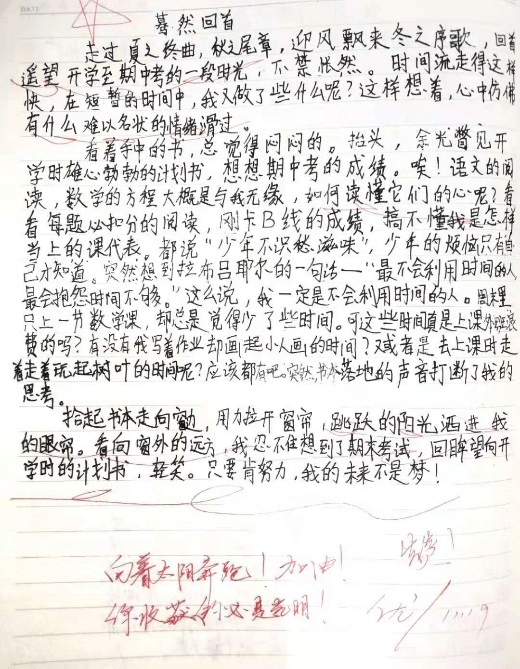 蓦然回首
走过夏之终曲，秋之尾章，迎风飘来冬之序歌，回首
遥望开学至期中考的一段时光，不禁怅然。时间流走得这样
快，在短暂的时间中，我又做了些什么呢？这样想着，心中仿佛
有什么难以名状的情绪滑过。
看着手中的书，总觉得闷闷的。抬头，余光瞥见开
学时雄心勃勃的计划书，想想期中考的成绩。唉！语文的阅
读，数学的方程大概是与我无缘，如何读懂它们的心呢？看
看每题必扣分的阅读，刚卡B线的成绩，搞不懂我是怎样
当上的课代表。都说“少年不识愁滋味”，少年的烦恼只有自
己才知道。突然想到拉布吕耶尔的一句话——“最不会利用时间的人，
最会抱怨时间不够。”这么说，我一定是不会利用时间的人。周末里
只上一节数学课，却总是觉得少了些时间。可这些时间真是上课外班浪
费的吗？有没有我写着作业却画起小人画的时间？又或者是去上课时走
着走着玩起树叶的时间呢？应该都有吧。突然书本落地的声音打断了我的
思考。
拾起书本走向窗边，用力拉开窗帘，跳跃的阳光洒进我
的眼帘。看向窗外的远方，我忍不住想到了期末考试，回眸望向开
学时的计划书，轻笑。只要肯努力，我的未来不是梦！
向着太阳奔跑！加油！
你收获的必是光明！
优 / 11.19